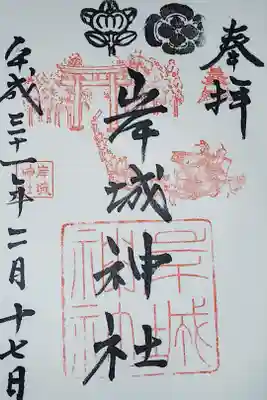 奉拝
岸城神社
平成三十一年二月十七日
岸城神社
岸城神社